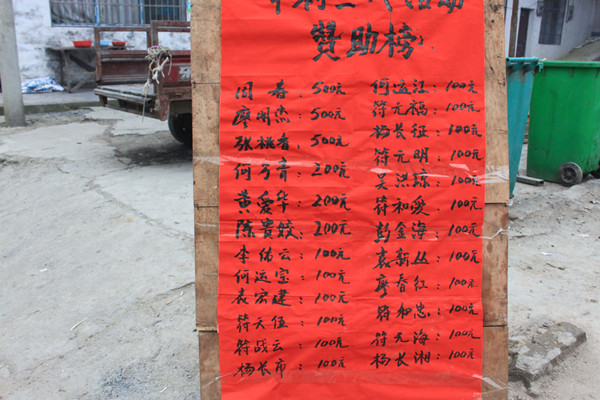 赞助榜
周春 500元
廖明杰: 500元
张桃香: 500元
何亏音: 200元
黄爱华: 200元
陈贵姣: 200元
李幼云: 100元
何运宝: 100元
袁宏建: 100元
符天伍: 100元
符战云: 100元
杨长市: 100元
何运江: 100元
符元福: 100元
杨长征: 100元
符元明: 100元
吴洪琼: 100元
符和爱: 100元
彭金海: 100元
袁新丛: 100元
廖春红: 100元
符和忠: 100元
符元海: 100元
杨长湘: 100元